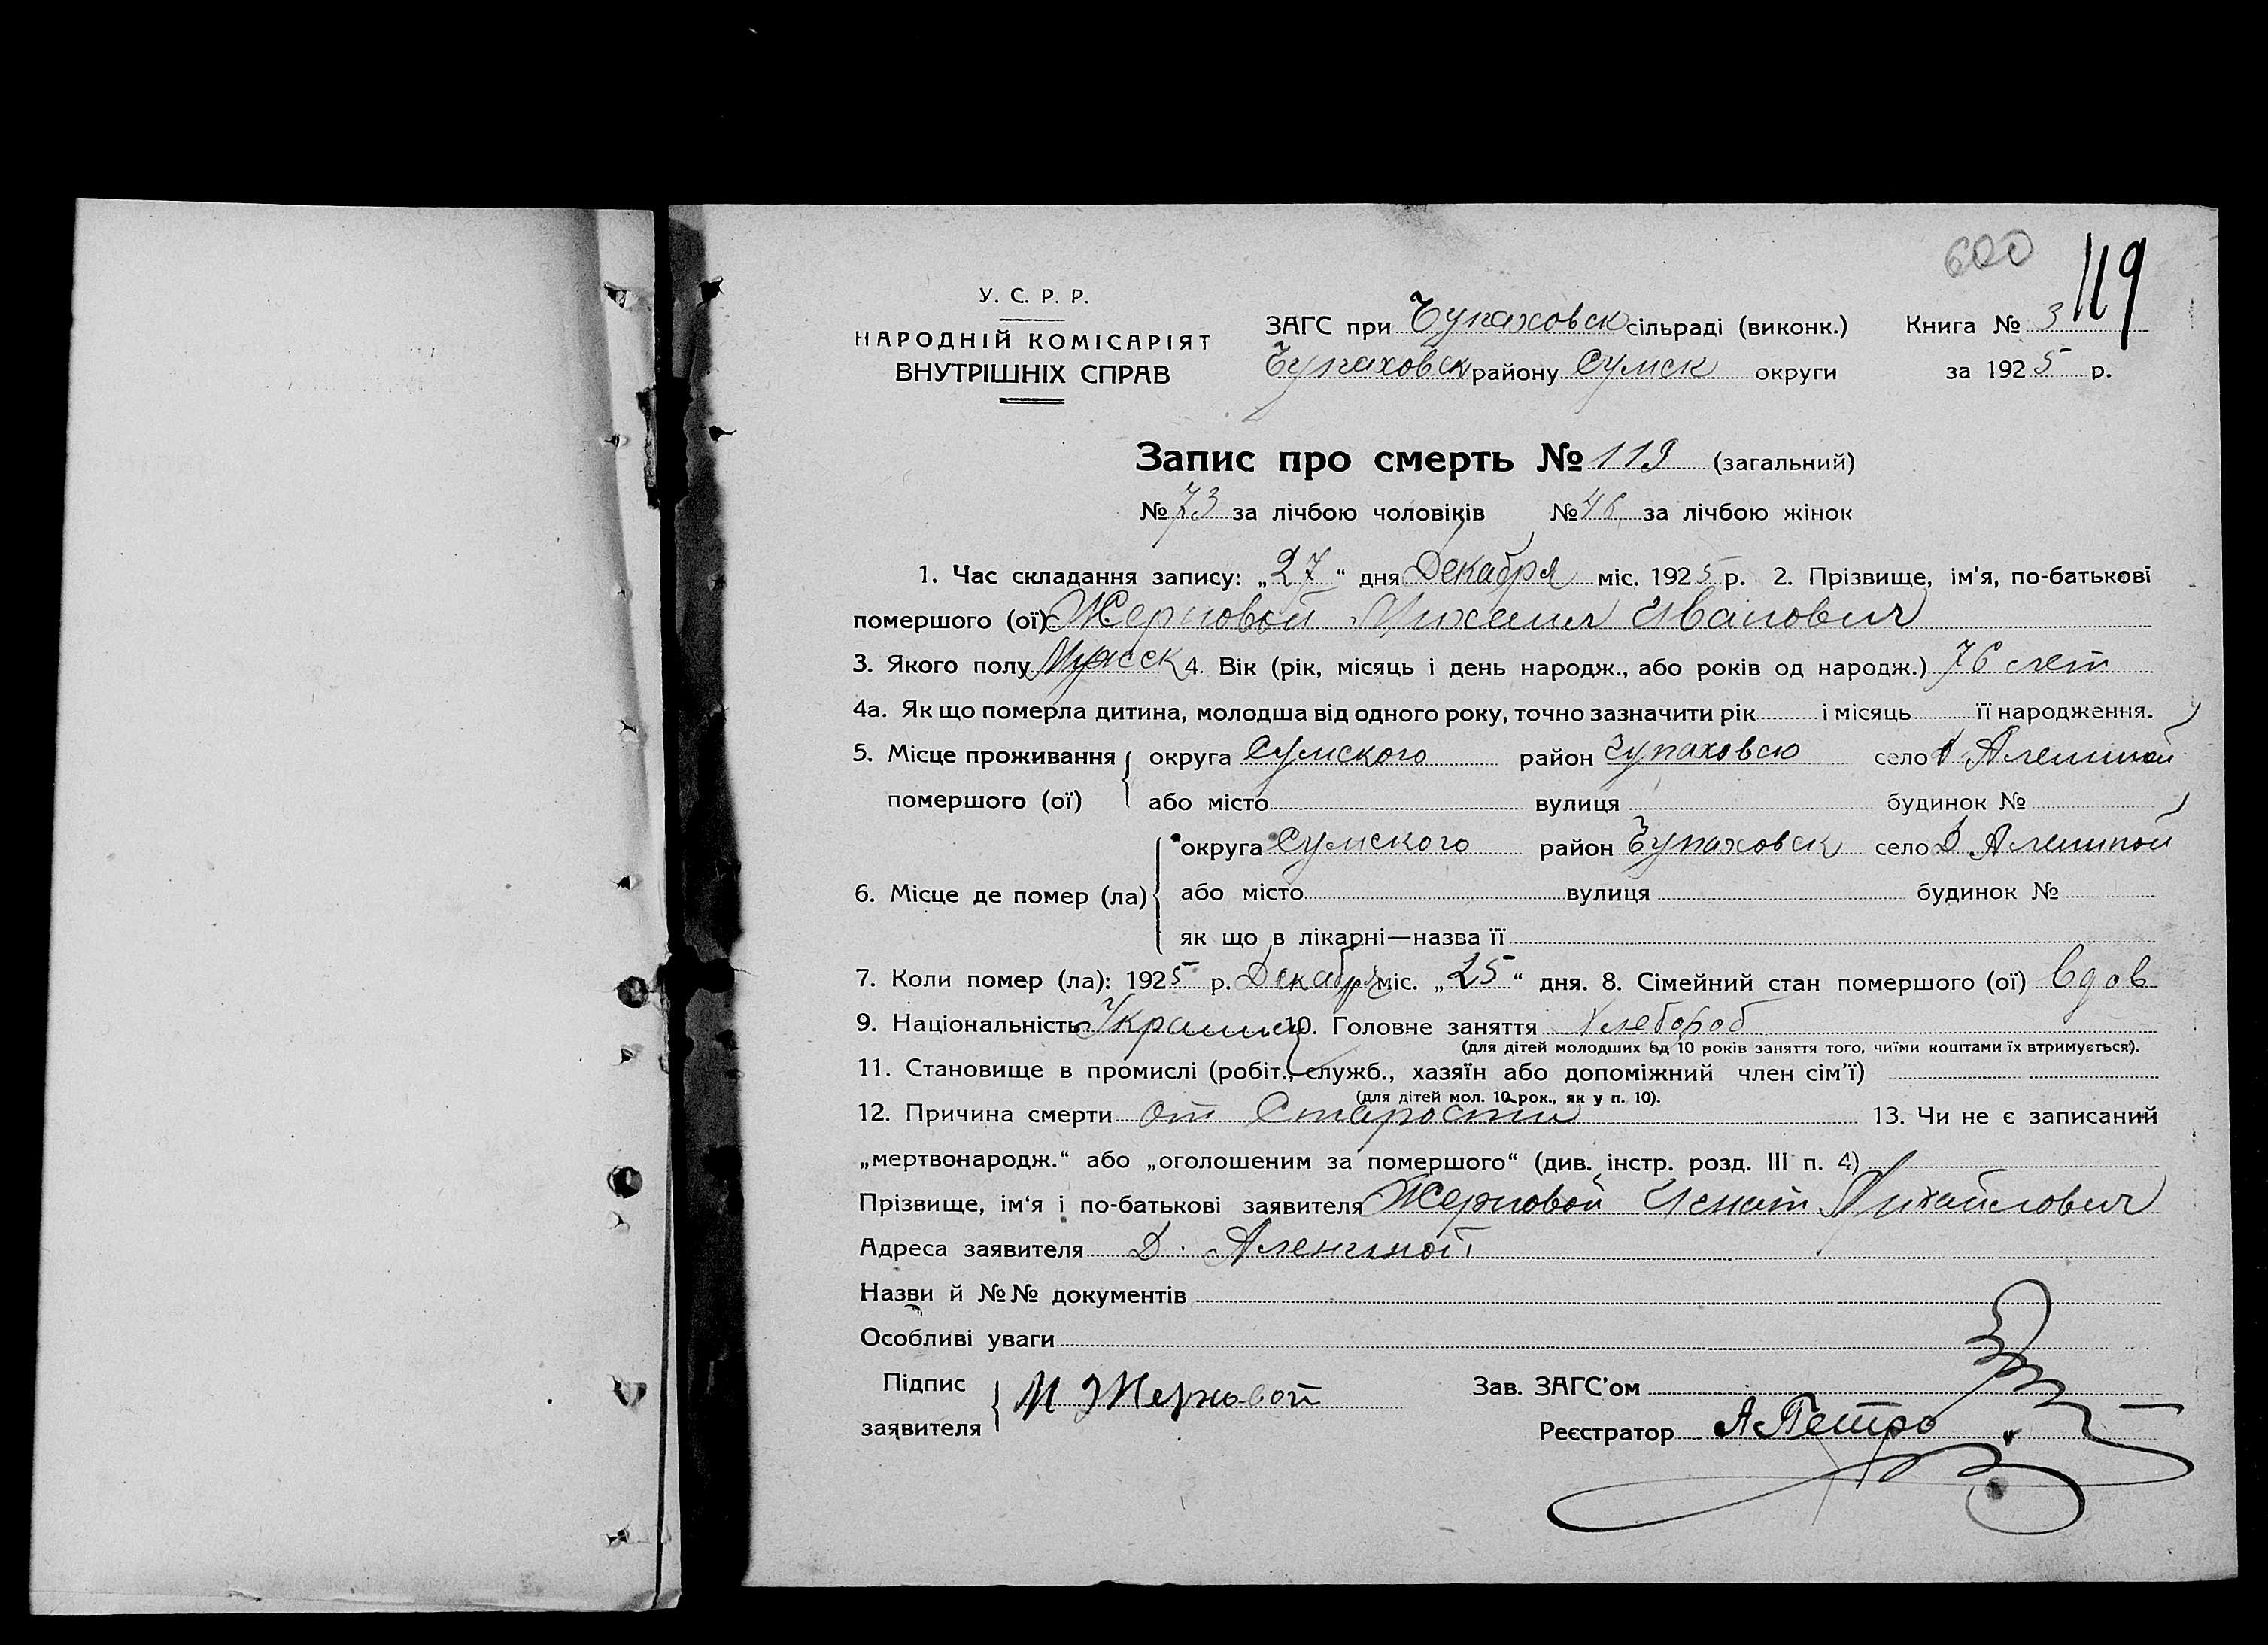 600
119
У. С. Р. Р.
НАРОДНІЙ КОМІСАРІЯТ
ВНУТРІШНІХ СПРАВ
ЗАГС при Чупаховск сільраді (виконк.) Книга № 3
Чупаховск району Сумск округи за 1925 р.
Запис про смерть № 119 (загальний)
№ 73 за лічбою чоловіків № 46 за лічбою жінок
1. Час складання запису: „27“ дня Декабря міс. 1925 р. 2. Прізвище, ім'я, по-батькові
помершого (ої) Жерновой Михаил Иванович
3. Якого полу Мужск 4. Вік (рік, місяць і день народж., або років од народж.) 76 лет
4а. Як що померла дитина, молодша від одного року, точно зазначити рік і місяць її народження.
5. Місце проживання помершого (ої) округа Сумского район Чупаховско село Д Алешиной
або місто вулиця будинок №
6. Місце де помер (ла) округа Сумского район Чупаховск село Д Алешиной
або місто вулиця будинок №
як що в лікарні—назва її
7. Коли помер (ла): 1925 р. Декабря міс. „25“ дня. 8. Сімейний стан помершого (ої) вдов
9. Національність Украинец 10. Головне заняття Хлебороб
(для дітей молодших од 10 років заняття того, чиїми коштами їх втримується).
11. Становище в промислі (робіт., служб., хазяїн або допоміжний член сім'ї)
(для дітей мол. 10 рок., як у п. 10).
12. Причина смерти от Старости 13. Чи не є записаний
„мертвонародж.“ або „оголошеним за помершого“ (див. інстр. розд. III п. 4)
Прізвище, ім'я і по-батькові заявителя Жерновой Игнат Михайлович
Адреса заявителя Д. Алешиной
Назви й №№ документів
Особливі уваги
Підпис заявителя И Жерновой Зав. ЗАГС'ом
Реєстратор А Петро